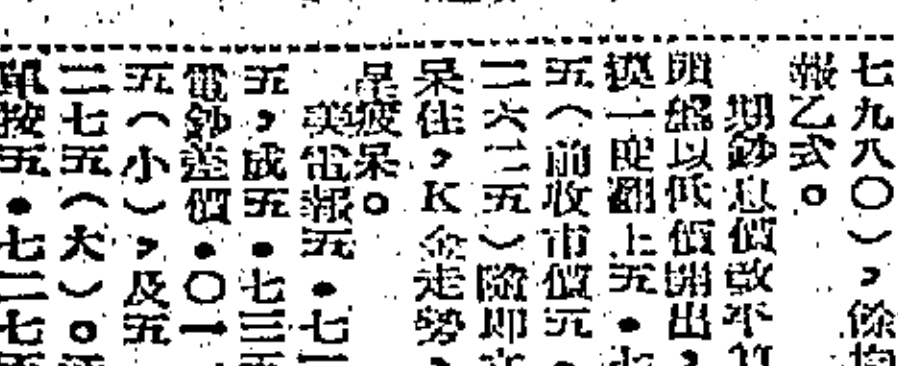 七九八〇），餘均
報乙式。
期鈔息價敬平算
開盤以低價開出，
後一度翻上五•七
五（前收市價元•
二六二五）隨即
呆住，K金走勢，
呈疲呆。
美電報五•七一
五，成五•七三五
電鈔差價•〇一
五（小），及五
二七五（大）。
單按五•七二七五